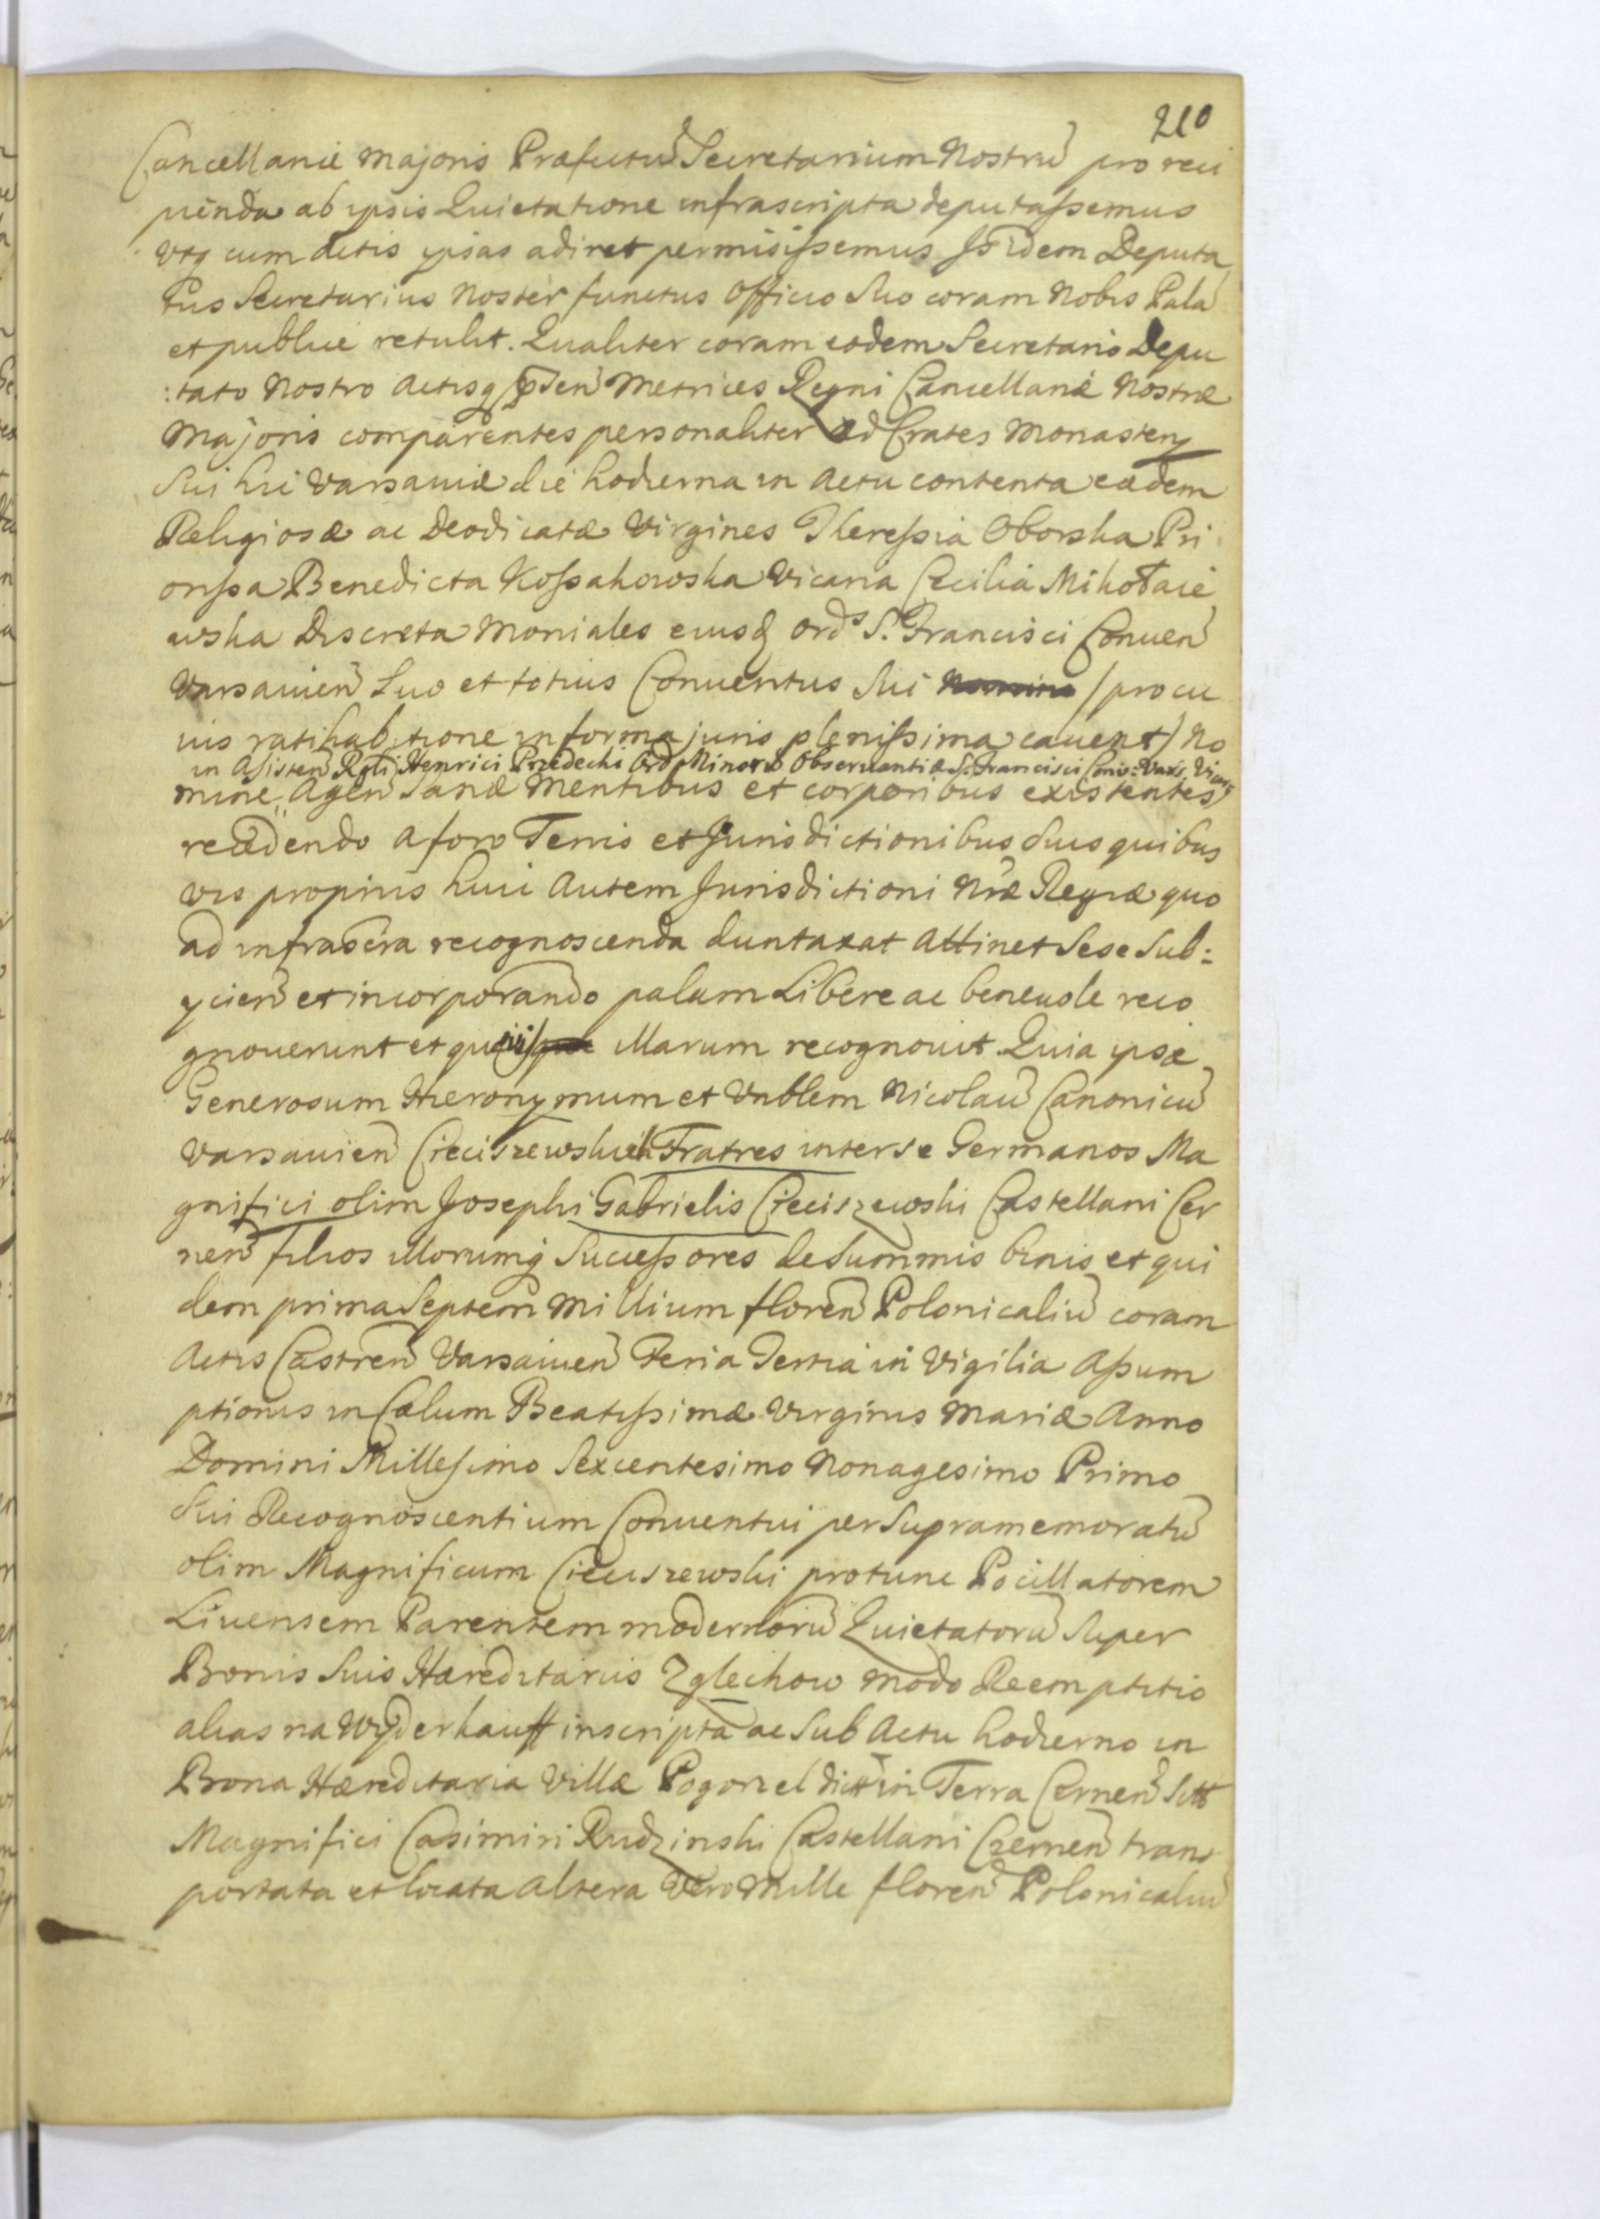 210
Cancellariæ Majoris Præfectũ Secretarium Nostrũ pro reci
pienda ab ipsis Quietatione infrascripta deputassemus
Utq cum Actis ipsas adiret permisissemus Is idem Deputa
tus Secretarius Noster functus Officio Suo coram Nobis Palã
et publice retulit. Qualiter coram eodem Secretario Depu
:tato Nostro Actisq pñsen Metrices Regni Cancellariæ Nostræ
Majoris comparentes personaliter ad Crates Monastery
Sui hic Varsaviæ die hodierna in Actu contenta eædem
Religiosæ ac Deodicatæ Virgines Theressia Oborska Pri
orissa Benedicta Kossakowska Vicaria Cecilia Mikołaie
wska Discreta Moniales eiusd Ords S. Francisci Conuen
Varsauien Suo et totius Conuentus Sui /pro cu
ius ratihabitione in forma juris plenissima cauent/ No
in Assisten Rgli Henrici Przedecki Ord Minorũ Obseruantiæ S. Francisci Conv: Vars. Vicarij
mine Agen Sanæ Mentibus et corporibus existentes
recedendo a foro Terris et Jurisdictionibus Suis quibus
vis proprijs huic Autem Jurisdictioni Nræ Regiæ quo
ad infrascra recognoscenda duntaxat Attinet Sese Sub:
ycien et incorporando palam Libere ac beneuole reco
gnouerunt et quævis illarum recognouit Quia ipsæ
Generosum Hieronymum et Vnblem Nicolaũ Canonicũ
Varsauien Cieciszewskich Fratres inter se Germanos Ma
gnifici olim Josephi Gabrielis Cieciszewski Castellani Cer
nen filios illorumq Successores de Summis binis et qui
dem prima Septem Millium floren Polonicaliũ coram
Actis Castren Varsauien Feria Tertia in Vigilia Assum
ptionis in Cælum Beatissimæ Virginis Mariæ Anno
Domini Millesimo Sexcentesimo Nonagesimo Primo
Sui Recognoscentium Conuentui per Supramemoratũ
olim Magnificum Cieciszewski protunc Pocillatorem
Liuensem Parentem modernorũ Quietatorũ Super
Bonis Suis Hæreditariis Zglechow modo Reemptitio
alias na Wyderkauff inscripta ac Sub Actu hodierno in
Bona Hæreditaria Villæ Pogorzel dict in Terra Cernen Sitt
Magnifici Casimiri Rudzinski Castellani Czernen trans
portata et locata altera Vero Mille floren Polonicaliũ